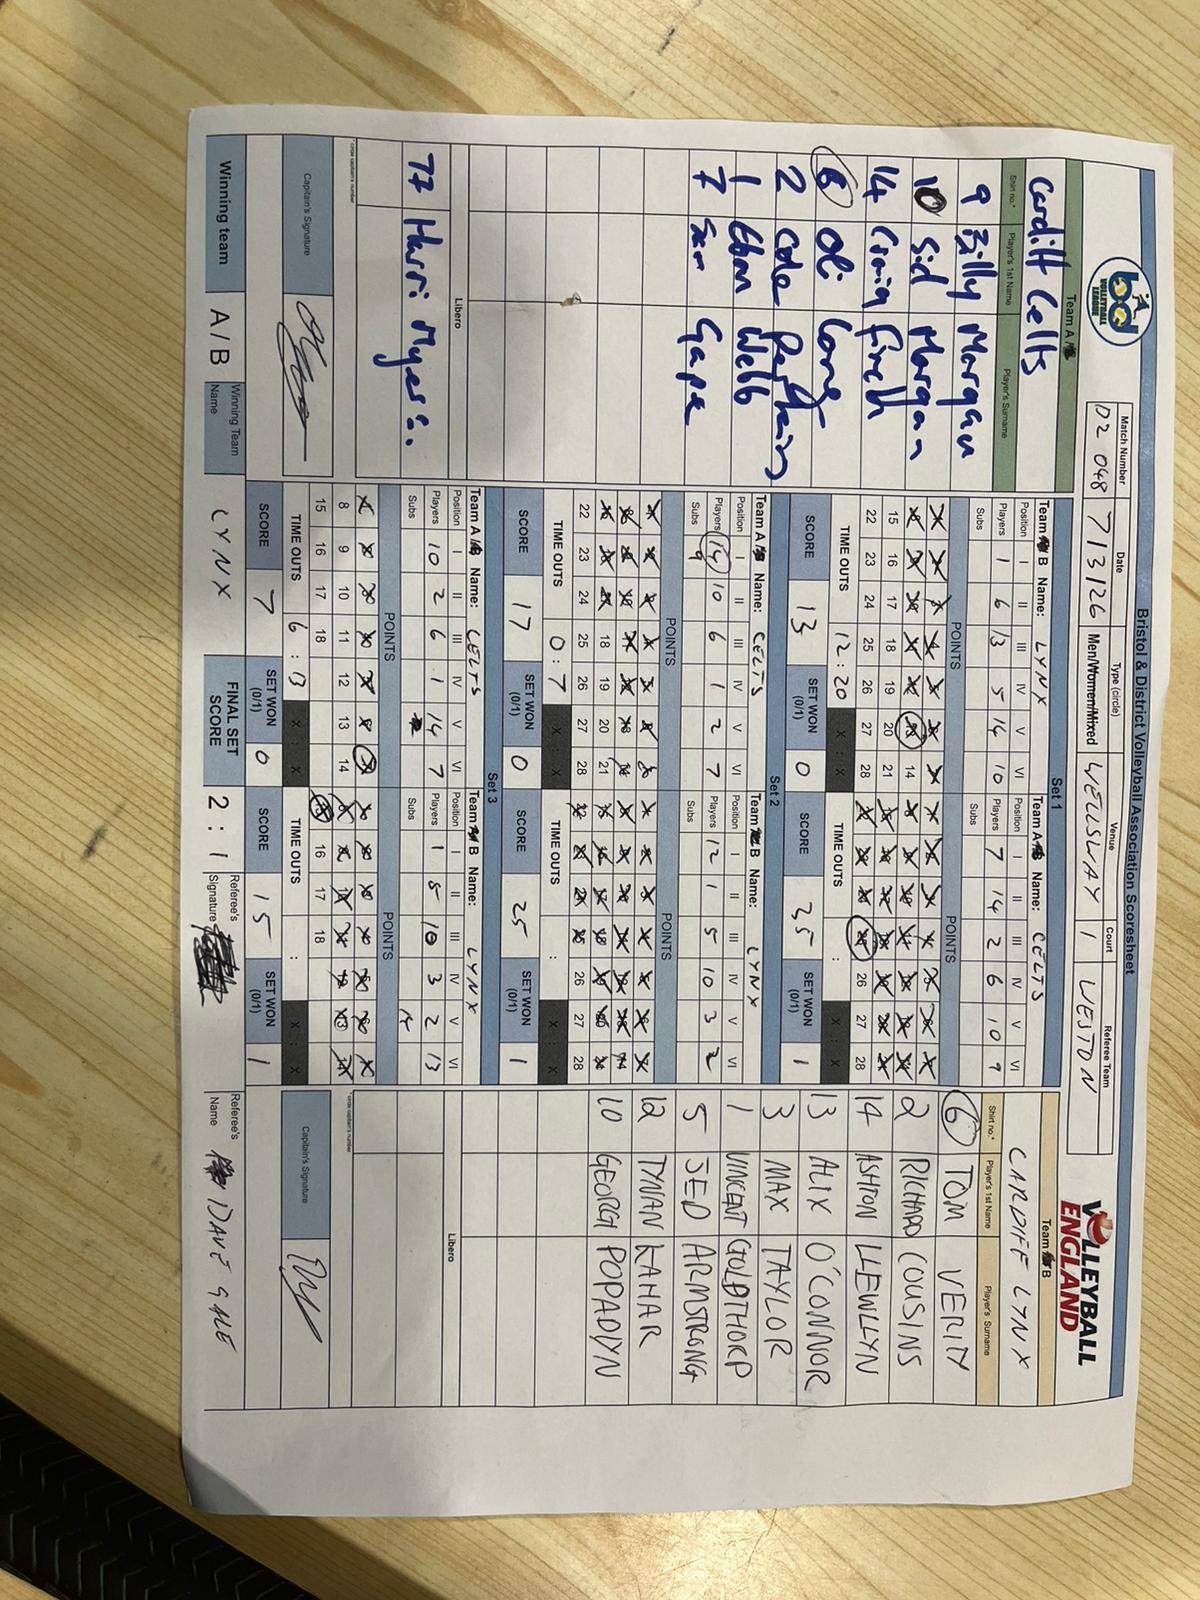 Bristol & District Volleyball Association Scoresheet
bd
VOLLEYBALL
LEAGUE
VOLLEYBALL
ENGLAND
Match Number Date Type (circle) Venue Court Referee Team
D2 048 7/3/26 Men/Women/Mixed WELLSWAY 1 WESTON
Team A
Cardiff Celts
Shirt no.* Player's 1st Name Player's Surname
9 Billy Morgan
10 Sid Morgan
14 Craig Finch
6 Oli Long
2 Cole
1 Webb
7 Sam Gape
Libero
77 Harri Myers.
*circle captain's number
Captain's Signature
Set 1
Team B Name: LYNX
Position I II III IV V VI
Players 1 6 13 5 14 10
Subs
POINTS
14
15 16 17 18 19 20 21
22 23 24 25 26 27 28
TIME OUTS 12:20 X:X
SCORE 13 SET WON (0/1) 0
Team A Name: CELTS
Position I II III IV V VI
Players 7 14 2 6 10 9
Subs
POINTS
26 27 28
TIME OUTS : X:X
SCORE 35 SET WON (0/1) 1
Set 2
Team A Name: CELTS
Position I II III IV V VI
Players 14 10 6 1 2 7
Subs 9
POINTS
18 19 20 21
22 23 24 25 26 27 28
TIME OUTS 0:7 X:X
SCORE 17 SET WON (0/1) 0
Team B Name: LYNX
Position I II III IV V VI
Players 12 1 5 10 3 2
Subs
POINTS
26 27 28
TIME OUTS : X:X
SCORE 25 SET WON (0/1) 1
Set 3
Team A Name: CELTS
Position I II III IV V VI
Players 10 2 6 1 14 7
Subs
POINTS
8 9 10 11 12 13 14
15 16 17 18
TIME OUTS 6:13 X:X
SCORE 7 SET WON (0/1) 0
Team B Name: LYNX
Position I II III IV V VI
Players 1 5 10 3 2 13
Subs
POINTS
15 16 17 18
TIME OUTS : X:X
SCORE 15 SET WON (0/1) 1
Team B
CARDIFF LYNX
Shirt no.* Player's 1st Name Player's Surname
6 TOM VERITY
2 RICHARD COUSINS
14 ASHTON LLEWLLYN
13 ALIX O'CONNOR
3 MAX TAYLOR
1 VINCENT GOLDTHORP
5 JED ARMSTRONG
12 TYNAN LAHAR
10 GEORGI POPADIYN
Libero
*circle captain's number
Captain's Signature
Winning team A / B Winning Team Name LYNX FINAL SET SCORE 2 : 1 Referee's Signature Referee's Name DAVE GALE